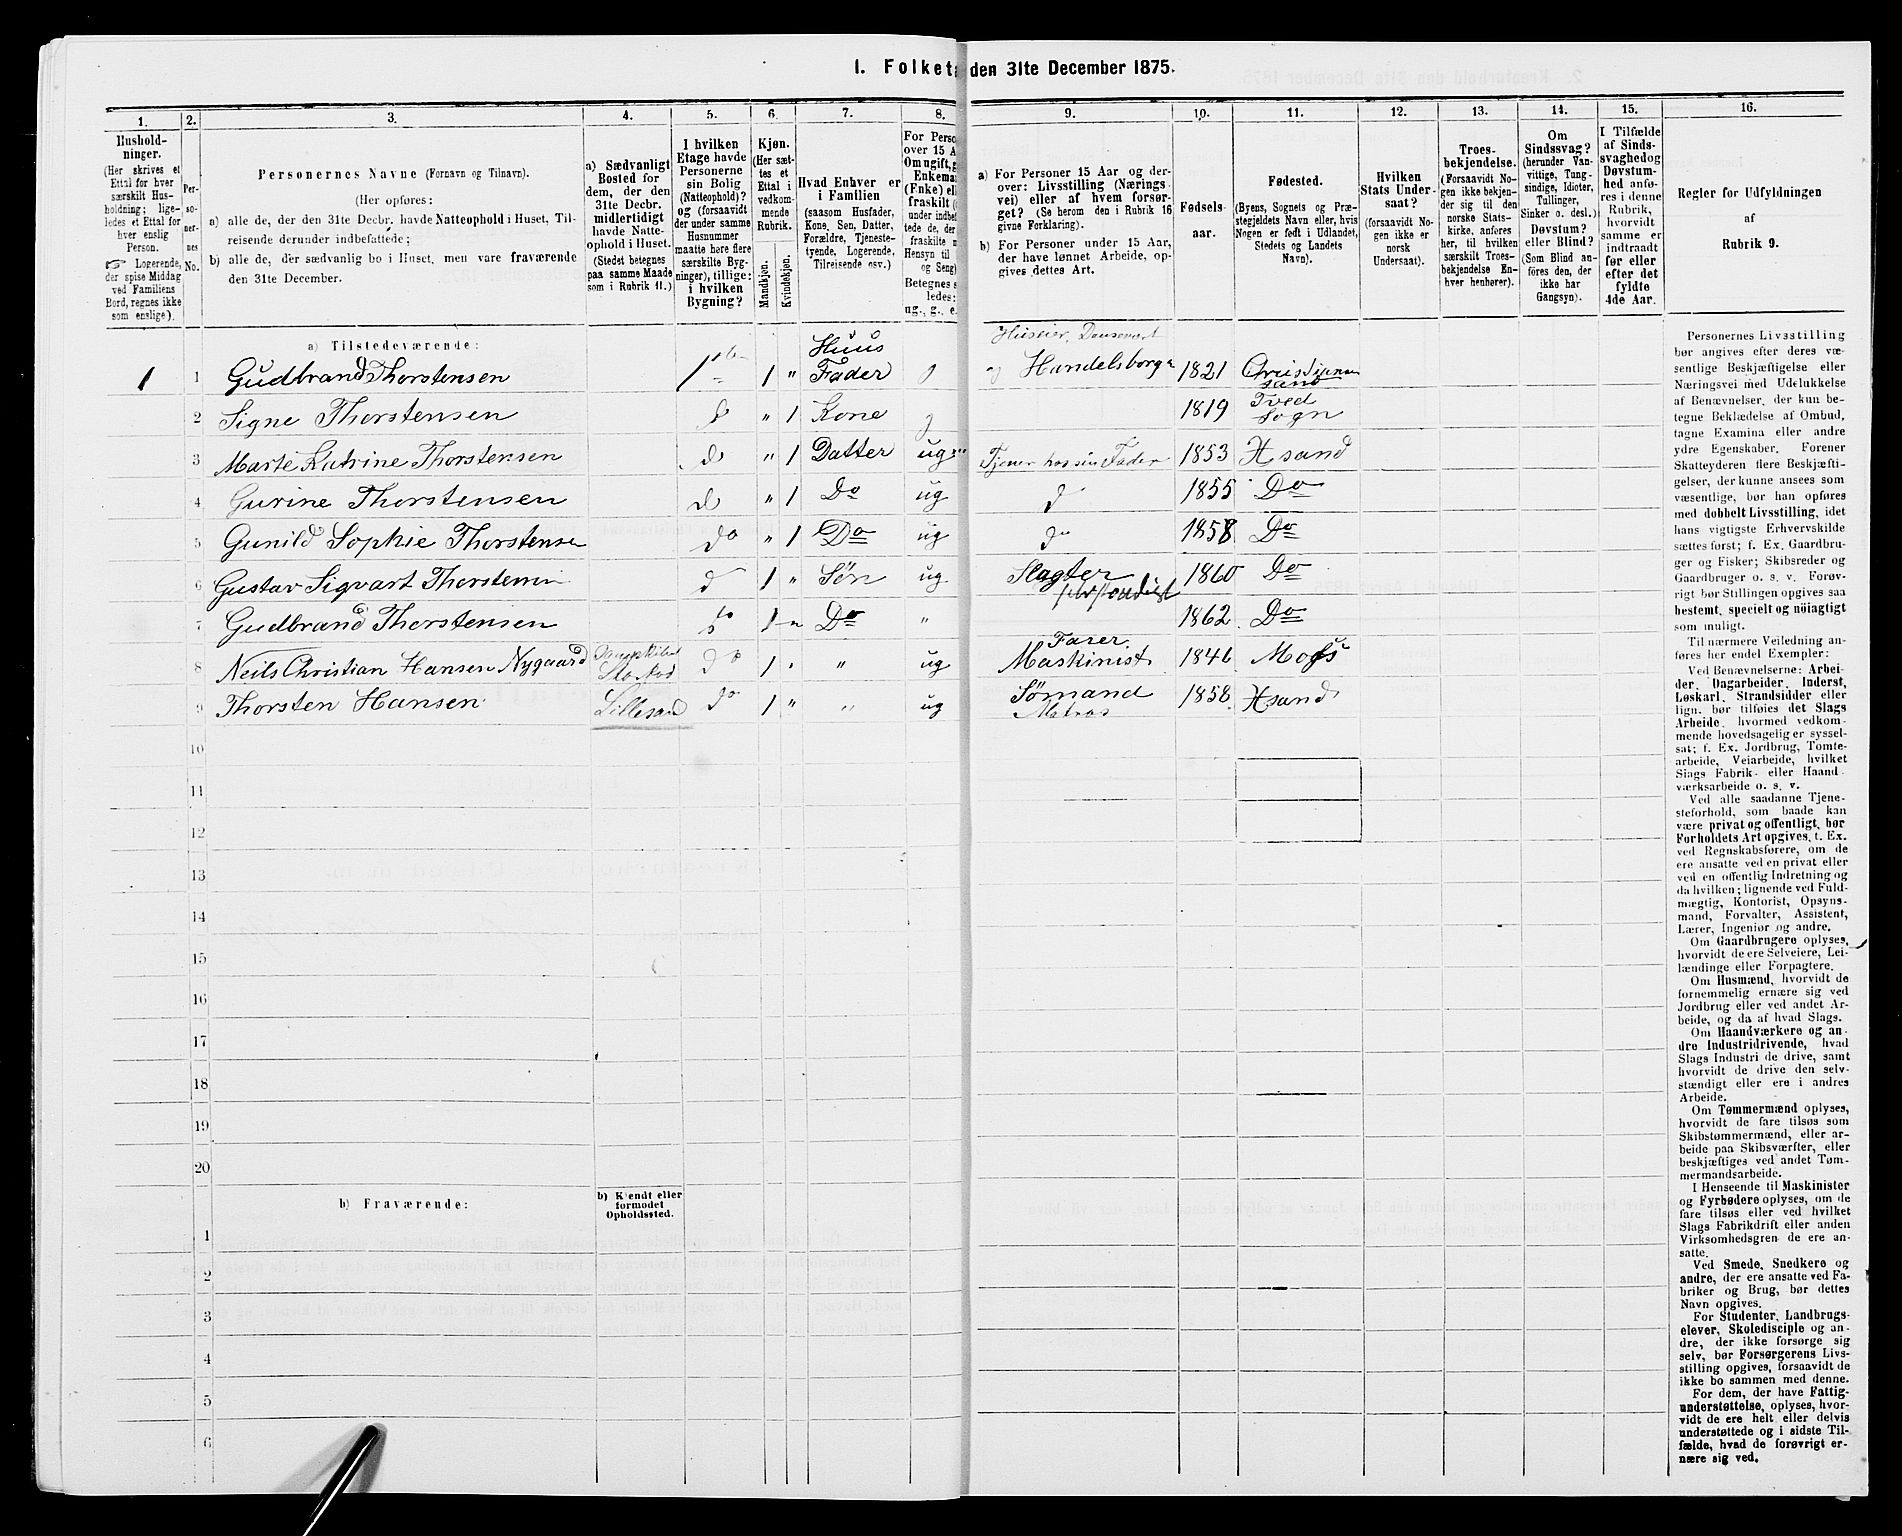 1. Folket den 31te December 1875.
1.
2.
3.
4.
5.
6.
7.
8.
9.
10.
11.
12.
13.
14.
15.
16.
Hushold-
ninger.
(Her skrives et
Ettal for hver
særskilt Hus-
holdning; lige-
ledes et Ettal for
hver enslig
Person.
☞ Logerende,
der spise Middag
ved Familiens
Bord, regnes ikke
som enslige).
Per-
so-
ner-
nes
No.
Personernes Navne (Fornavn og Tilnavn).
(Her opføres:
a) alle de, der den 31te Decbr. havde Natteophold i Huset, Til-
reisende derunder indbefattede;
b) alle de, der sædvanlig bo i Huset, men vare fraværende
den 31te December.
a) Sædvanligt
Bosted for
dem, der den
31te Decbr.
midlertidigt
havde Natte-
ophold i Huset.
(Stedet betegnes
paa samme Maade
som i Rubrik 11.)
I hvilken
Etage havde
Personerne
sin Bolig
(Natteophold)?
og (forsaavidt
der under samme
Husnummer
maatte høre flere
særskilte Byg-
ninger), tillige:
i hvilken
Bygning?
Kjøn.
(Her sæt-
tes et
Ettal i
vedkom-
mende
Rubrik.
Mandkjøn.
Kvindekjøn.
Hvad Enhver er
i Familien
(saasom Husfader,
Kone, Søn, Datter,
Forældre, Tjeneste-
tyende, Logerende,
Tilreisende osv.)
For Perso
over 15 A
Om ugift, g
Enkema
(Enke) el
fraskilt
under indbef
tede de, der
fraskilte
Hensyn til
og Seng)
Betegnes s
ledes:
ug., g., e.
a) For Personer 15 Aar og der-
over: Livsstilling (Nærings-
vei) eller af hvem forsør-
get? (Se herom den i Rubrik 16
givne Forklaring).
b) For Personer under 15 Aar,
der have lønnet Arbeide, op-
gives dettes Art.
Fødsels-
aar.
Fødested.
(Byens, Sognets og Præ-
stegjeldets Navn eller, hvis
Nogen er født i Udlandet,
Stedets og Landets
Navn).
Hvilken
Stats Under-
saat?
(forsaavidt No-
gen ikke er
norsk
Undersaat).
Troes-
bekjendelse.
(Forsaavidt No-
gen ikke bekjen-
der sig til den
norske Stats-
kirke, anføres
her, til hvilken
særskilt Troes-
bekjendelse En-
hver henhører).
Om
Sindssvag?
(herunder Van-
vittige, Tung-
sindige, Idioter,
Tullinger,
Sinker o. desl.)
Døvstum?
eller Blind?
(Som Blind an-
føres den, der
ikke har
Gangsyn).
I Tilfælde
af Sinds-
svaghed og
Døvstum-
hed anfø-
res i denne
Rubrik,
hvorvidt
samme er
indtraadt
før eller
efter det
fyldte
4de Aar.
Regler for Udfyldningen
af
Rubrik 9.
a) Tilstedeværende:
Huus Huseier,
1 1 Gudbrand Thorstensen 1 1 " Fader g og Handelsborger 1821 Christiansand
2 Signe Thorstensen " 1 Kone g 1819 Tved Sogn
3 Marte Katrine Thorstensen d " 1 Datter ug Tjener hos sin Fader 1853 X sand
4 Gurine Thorstensen d " 1 Do ug d 1855 Do
5 Gunild Sophie Thorstensen do " 1 Do ug do 1858 Do
6 Gustav Sigvart Thorstensen d 1 " Søn ug. Slagter 1860 Do
7 Gudbrand Thorstensen do 1 " Do " 1862 Do
8 Neils Christian Hansen Nygaard do 1 " " ug Maskinist 1846 Moss
9 Thorsten Hansen Lillesand do 1 " " ug Sømand Matros 1858 X sand
10
11
12
13
14
15
16
17
18
19
20
b) Fraværende:
b) Kjendt eller
formodet
Opholdssted.
1
2
3
4
5
6
Personernes Livsstilling
bør angives efter deres væ-
sentlige Beskjæftigelse eller
Næringsvei med Udelukkelse
af Benævnelser, der kun be-
tegne Beklædelse af Ombud,
tagne Examina eller andre
ydre Egenskaber. Forener
Skatteyderen flere Beskjæfti-
gelser, der kunne ansees som
væsentlige, bør han opføres
med dobbelt Livsstilling, idet
hans vigtigste Erhvervskilde
sættes først; f. Ex. Gaardbru-
ger og Fisker; Skibsreder og
Gaardbruger o. s. v. Forøv-
rigt bør Stillingen opgives saa
bestemt, specielt og nöiagtigt
som muligt.
Til nærmere Veiledning an-
føres her endel Exempler:
Ved Benævnelserne: Arbei-
der, Dagarbeider, Inderst,
Løskarl, Strandsidder eller
lign. bør tilføies det Slags
Arbeide, hvormed vedkom-
mende hovedsagelig er syssel-
sat; f. Ex. Jordbrug, Tomte-
arbeide, Veiarbeide, hvilket
Slags Fabrik- eller Haand-
værksarbeide o. s. v.
Ved alle saadanne Tjene-
steforhold, som baade kan
være privat og offentligt, bør
Forholdets Art opgives, t. Ex.
ved Regnskabsførere, om de
ere ansatte ved en privat eller
ved en offentlig Indretning og
da hvilken; lignende ved Fuld-
mægtig, Kontorist, Opsyns-
mand, Forvalter, Assistent,
Lærer, Ingeniør og andre.
Om Gaardbrugere oplyses,
hvorvidt de ere Selveiere, Lei-
lændinge eller Forpagtere.
Om Husmænd, hvorvidt de
fornemmelig ernære sig ved
Jordbrug eller ved andet Ar-
beide, og da af hvad Slags.
Om Haandværkere og an-
dre Industridrivende, hvad
Slags Industri de drive, samt
hvorvidt de drive den selv-
stændigt eller ere i andres
Arbeide.
Om Tømmermænd oplyses,
hvorvidt de fare tilsøs som
Skibstømmermænd, eller ar-
beide paa Skibsværfter, eller
beskjæftiges ved andet Tøm-
mermandsarbeide.
I Henseende til Maskinister
og Fyrbødere oplyses, om de
fare tilsøs eller ved hvilket
Slags Fabrikdrift eller anden
Virksomhedsgren de ere an-
satte.
Ved Smede, Snedkere og
andre, der ere ansatte ved Fa-
briker og Brug, bør dettes
Navn opgives.
For Studenter, Landbrugs-
elever, Skoledisciple og an-
dre, der ikke forsørge sig
selv, bør Forsørgerens Livs-
stilling opgives, forsaavidt de
ikke bo sammen med denne.
For dem, der have Fattig-
understøttelse, oplyses, hvor-
vidt de ere helt eller delvis
understøttede og i sidste Til-
fælde, hvad de forøvrigt er-
nære sig ved.